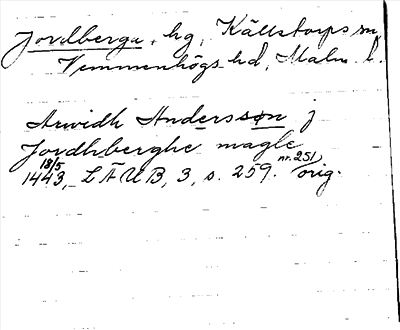 Jordberga, hg, Källstorps sn,
Vemmenhögs hd, Malm. l.
Arwidh Andersson j
Jordhberghe magle
18/5 nr. 251,
1443, L Ä U B, 3, s. 259. orig.